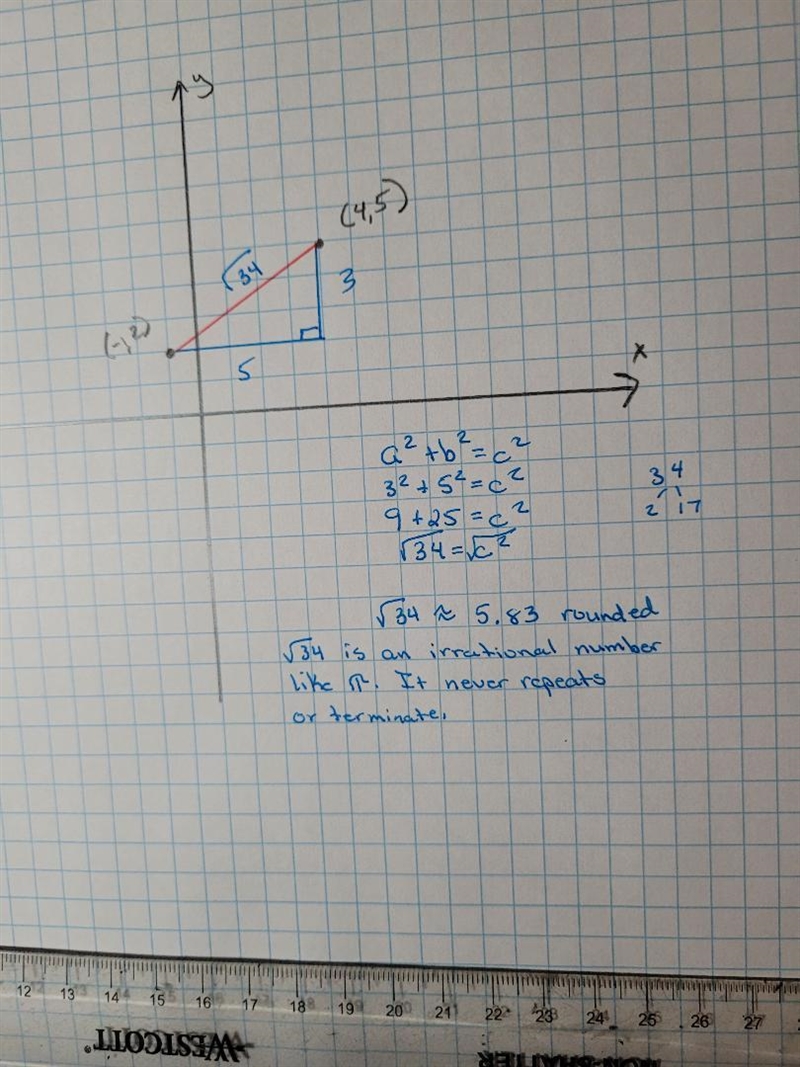 y
(4,5)
√34
3
(-1,2)
5
x
a² + b² = c²
3² + 5² = c²
9 + 25 = c²
√34 = √c²
34
2 17
√34 ≈ 5.83 rounded
√34 is an irrational number
like π. It never repeats
or terminate.
12 13 14 15 16 17 18 19 20 21 22 23 24 25 26 27
WESTCOTT®